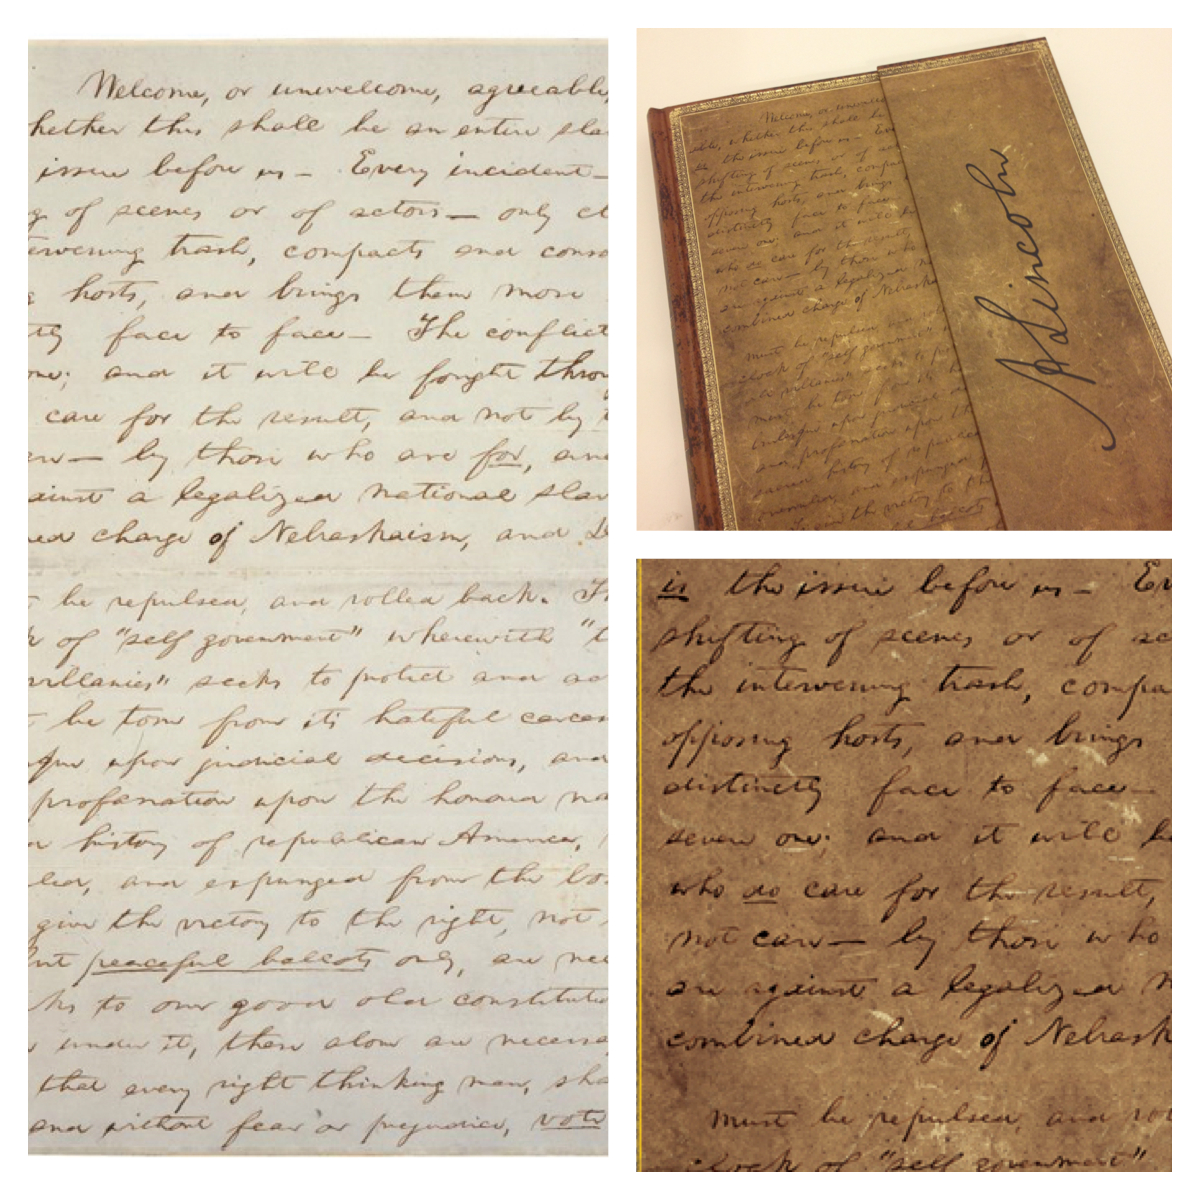 Welcome, or unwelcome, agreeable,
hether this shall be an entire sla
issue before us — Every incident —
g of scenes or of actors — only cl
ervening trash, compacts and conso
g hosts, and brings them more
tly face to face — The conflict
one; and it will be fought throu
care for the result, and not by t
en — by those who are for, and
ainst a legalized national slav
ned charge of Nebraskaism, and D
be repulsed, and rolled back. Th
k of "self government" wherewith "t
villanies" seeks to protect and ad
be torn from its hateful carcas
upon judicial decisions, and
profanation upon the honored na
d history of republican America,
led, and expunged from the bo
give the victory to the right, not
but peaceful ballots only, are nec
ks to our good old constitutio
under it, these alone are necessa
that every right thinking man, sha
and without fear or prejudice, vote
Welcome, or unwelco
able, whether this shall be
is the issue before us — Eve
shifting of scenes or of act
the intervening trash, compac
opposing hosts, and brings
distinctly face to face
seven one; and it will be
who do care for the result,
not care — by those who
are against a legalized n
combined charge of Nebrask
must be repulsed
cloak of "self government"
villanies"
must be torn from its h
upon judicial d
and profanation upon th
sacred history of republican
overruled, and expunged f
give the victory to the
ballots
A. Lincoln
is the issue before us — Ev
shifting of scenes or of ac
the intervening trash, compa
opposing hosts, and brings
distinctly face to face —
seven one; and it will be
who do care for the result,
not care — by those who
are against a legalized n
combined charge of Nebrask
must be repulsed, and rol
cloak of "self government"